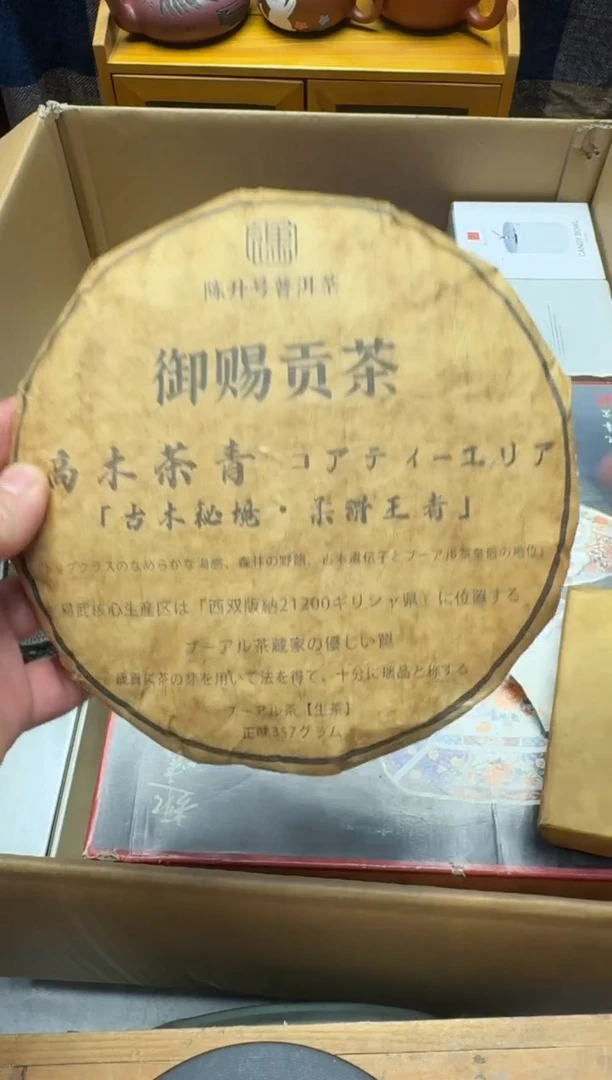 陈升号普洱茶
御赐贡茶
高木茶青 コアティーエリア
「古木秘境・柔滑王者」
プクラスのなめらかな湯感、森林の野韻、古木遺伝子とプーアル茶皇后の地位」
易武核心生産区は「西双版納21200ギリシャ県」に位置する
プーアル茶蔵家の優しい罠
茶の芽を用いて法を得て、十分に瑞品と称する
プーアル茶【生茶】
正味357グラム
CANDY BOWL